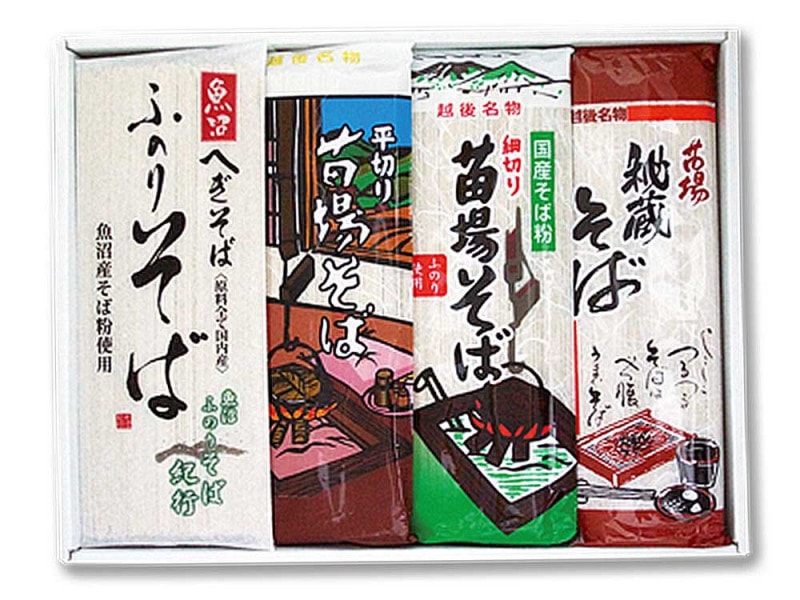 魚沼
へぎそば
〈原料全て国内産〉
ふのりそば
魚沼産そば粉使用
魚沼
ふのりそば
紀行
越後名物
平切り
苗場そば
越後名物
国産そば粉
細切り
苗場そば
ふのり
使用
越後名物
苗場
秘蔵
そば
つるつる
そばは
うまさは